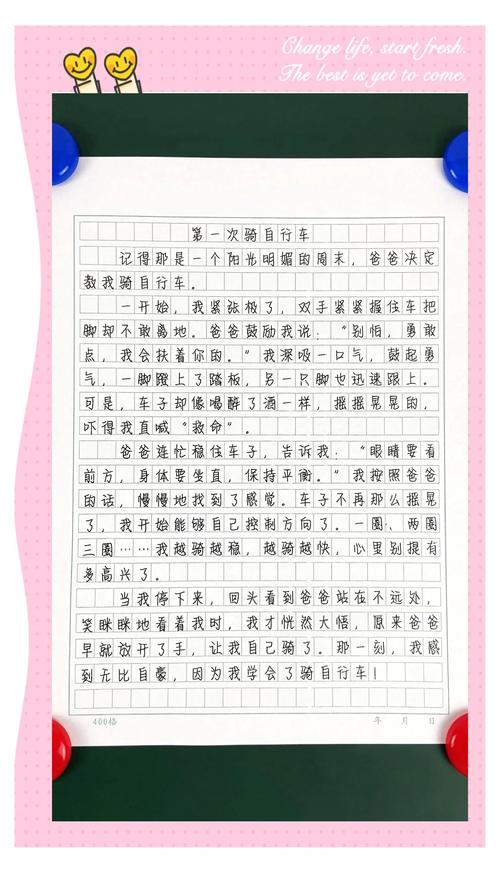 Change life, start fresh.
The best is yet to come.
第一次骑自行车
记得那是一个阳光明媚的周末，爸爸决定
教我骑自行车。
一开始，我紧张极了，双手紧紧握住车把
脚却不敢离地。爸爸鼓励我说：“别怕，勇敢
点，我会扶着你的。”我深吸一口气，鼓起勇
气，一脚蹬上了踏板，另一只脚也迅速跟上。
可是，车子却像喝醉了酒一样，摇摇晃晃的，
吓得我直喊“救命”。
爸爸连忙稳住车子，告诉我：“眼睛要看
前方，身体要坐直，保持平衡。”我按照爸爸
的话，慢慢地找到了感觉。车子不再那么摇晃
了，我开始能够自己控制方向了。一圈、两圈
三圈……我越骑越稳，越骑越快，心里别提有
多高兴了。
当我停下来，回头看到爸爸站在不远处，
笑眯眯地看着我时，我才恍然大悟，原来爸爸
早就放开了手，让我自己骑了。那一刻，我感
到无比自豪，因为我学会了骑自行车！
400格 年 月 日